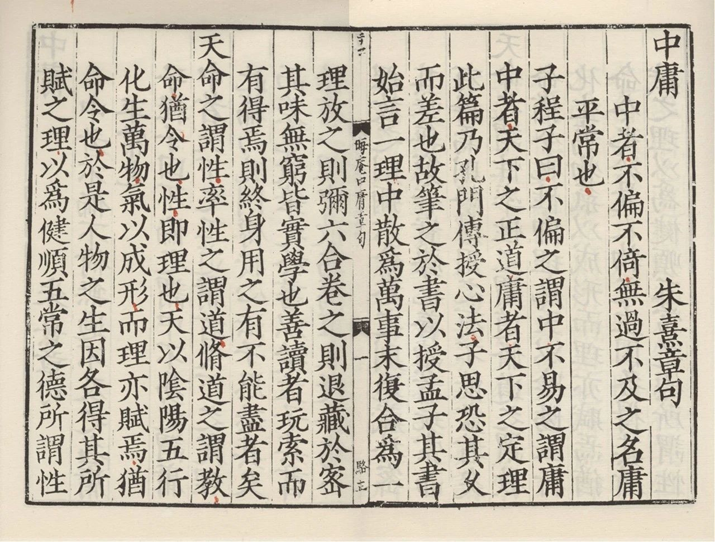 中庸 朱熹章句
中者不偏不倚無過不及之名庸
平常也
子程子曰不偏之謂中不易之謂庸
中者天下之正道庸者天下之定理
此篇乃孔門傳授心法子思恐其乆
而差也故筆之於書以授孟子其書
始言一理中散爲萬事末復合爲一
晦庵口庸章句 一
理放之則彌六合卷之則退藏於宻
其味無窮皆實學也善讀者玩索而
有得焉則終身用之有不能盡者矣
天命之謂性率性之謂道脩道之謂教
命猶令也性即理也天以陰陽五行
化生萬物氣以成形而理亦賦焉猶
命令也於是人物之生因各得其所
賦之理以爲健順五常之德所謂性